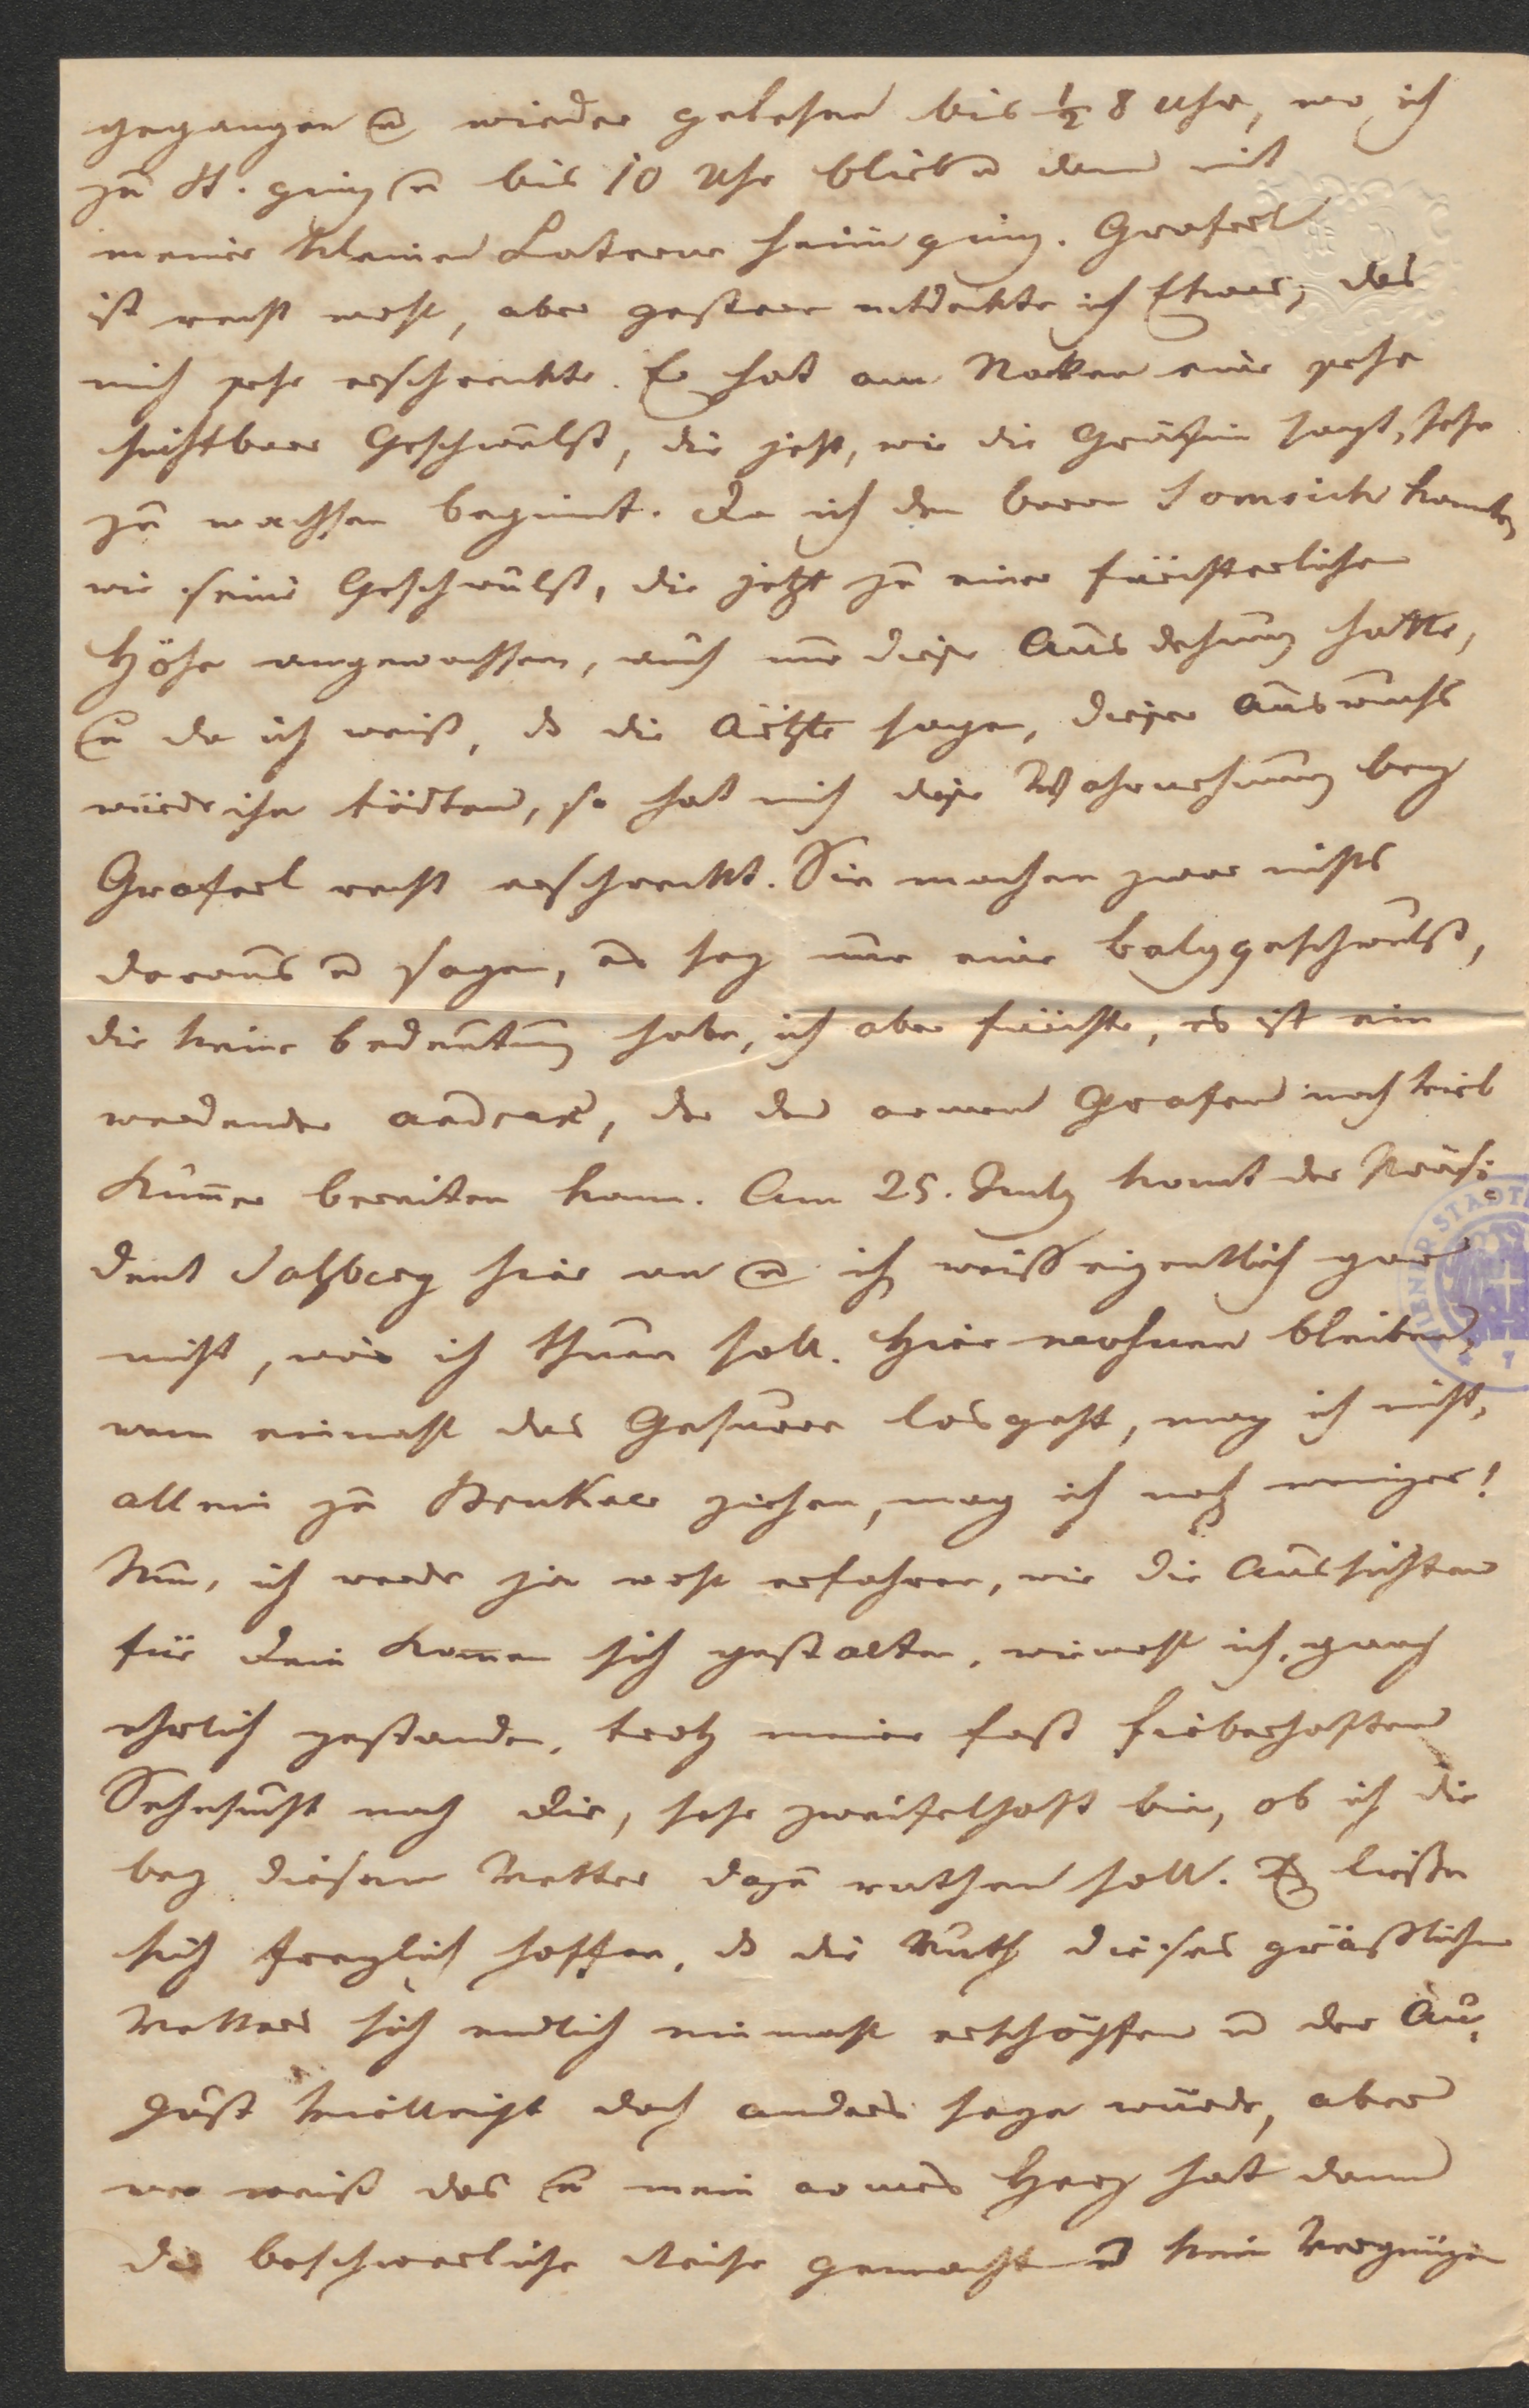 gegangen u wieder gelesen bis ½ 8 Uhr, wo ich
zu St. ging u bis 10 Uhr blieb u dann mit
meiner kleinen Laterne heim ging. Graferl
ist recht wohl, aber gestern entdeckte ich Etwas, das
mich sehr erschreckte. Er hat am Nacken eine sehr
sichtbare Geschwulst, die jetzt, wie die Gräfin sagt, sehr
zu wachsen beginnt. Da ich den Baron kannte,
wie seine Geschwulst, die jetzt zu einer fürchterlichen
Höhe angewachsen, auch nur diese Ausdehnung hatte,
u da ich weiß, dß die Ärzte sagen, dieser Auswuchs
würde ihn tödten, so hat mich diese Wahrnehmung bey
Graferl recht erschreckt. Sie machen zwar nichts
daraus u sagen, es sey nur eine Balggeschwulst,
die keine Bedeutung habe, ich aber fürchte, es ist ein
werdender, der den armen Grafen noch viel
Kummer bereiten kann. Am 25. July kommt der Präsi-
dent hier an u ich weiß eigentlich gar
nicht, was ich thun soll. Hier wohnen bleiben,
wenn einmahl das Gesurre losgeht, mag ich nicht,
allein zu ziehen, mag ich noch weniger!
Nun, ich werde ja wohl erfahren, wie die Aussichten
für Dein Kommen sich gestalten, wiewohl ich, ganz
ehrlich gestanden, trotz meiner fast fieberhaften
Sehnsucht nach Dir, sehr zweifelhaft bin, ob ich Dir
bey diesem Wetter dazu rathen soll. Es ließe
sich freylich hoffen, dß die Wuth dieses gräßlichen
Wetters sich endlich einmahl erschöpfen u der Au-
gust vielleicht doch anders seyn würde, aber
wer weiß das u mein armes Herz hat dann
die beschwerliche Reise gemacht u kein Vergnügen